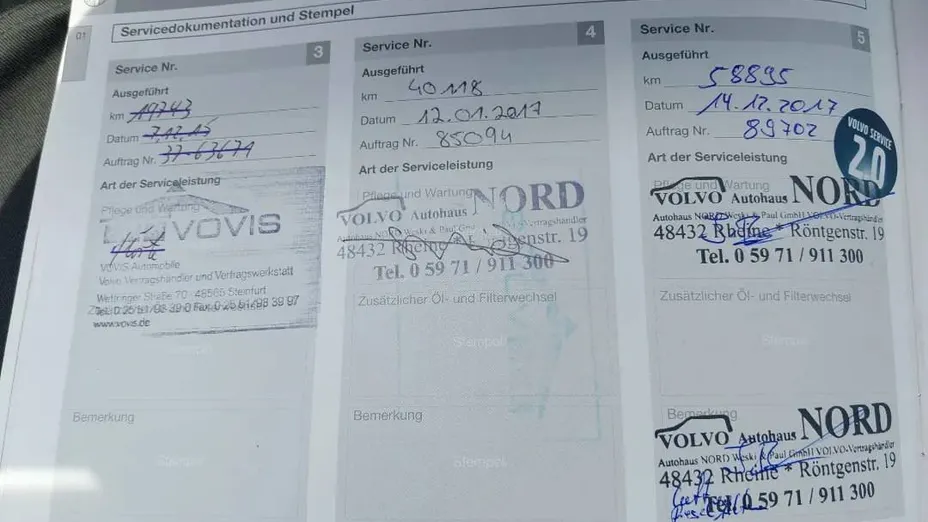 01
Servicedokumentation und Stempel
Service Nr. 3
Ausgeführt
km 19743
Datum 7.12.15
Auftrag Nr. 37-63671
Art der Serviceleistung
Pflege und Wartung
VOVIS
VOVIS Automobile
Volvo Vertragshändler und Vertragswerkstatt
Wettringer Straße 70 · 48565 Steinfurt
Tel. 0 25 51/93 39 0 Fax 0 25 51/93 39 97
www.vovis.de
Stempel
Bemerkung
Stempel
Service Nr. 4
Ausgeführt
km 40118
Datum 12.01.2017
Auftrag Nr. 85094
Art der Serviceleistung
Pflege und Wartung
VOLVO Autohaus NORD
Autohaus NORD Weski & Paul GmbH VOLVO-Vertragshändler
48432 Rheine * Röntgenstr. 19
Tel. 0 59 71 / 911 300
Zusätzlicher Öl- und Filterwechsel
Stempel
Bemerkung
Stempel
Service Nr. 5
Ausgeführt
km 58895
Datum 14.12.2017
Auftrag Nr. 89702
VOLVO SERVICE
2.0
Art der Serviceleistung
Pflege und Wartung
VOLVO Autohaus NORD
Autohaus NORD Weski & Paul GmbH VOLVO-Vertragshändler
48432 Rheine * Röntgenstr. 19
Tel. 0 59 71 / 911 300
Zusätzlicher Öl- und Filterwechsel
Stempel
Bemerkung
VOLVO Autohaus NORD
Autohaus NORD Weski & Paul GmbH VOLVO-Vertragshändler
48432 Rheine * Röntgenstr. 19
Tel. 0 59 71 / 911 300